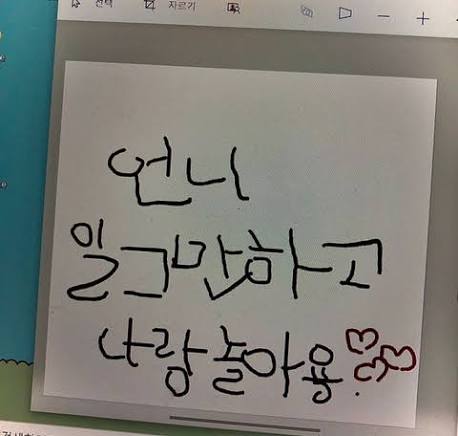 선택 자르기
언니
일그만하고
나랑놀아용.